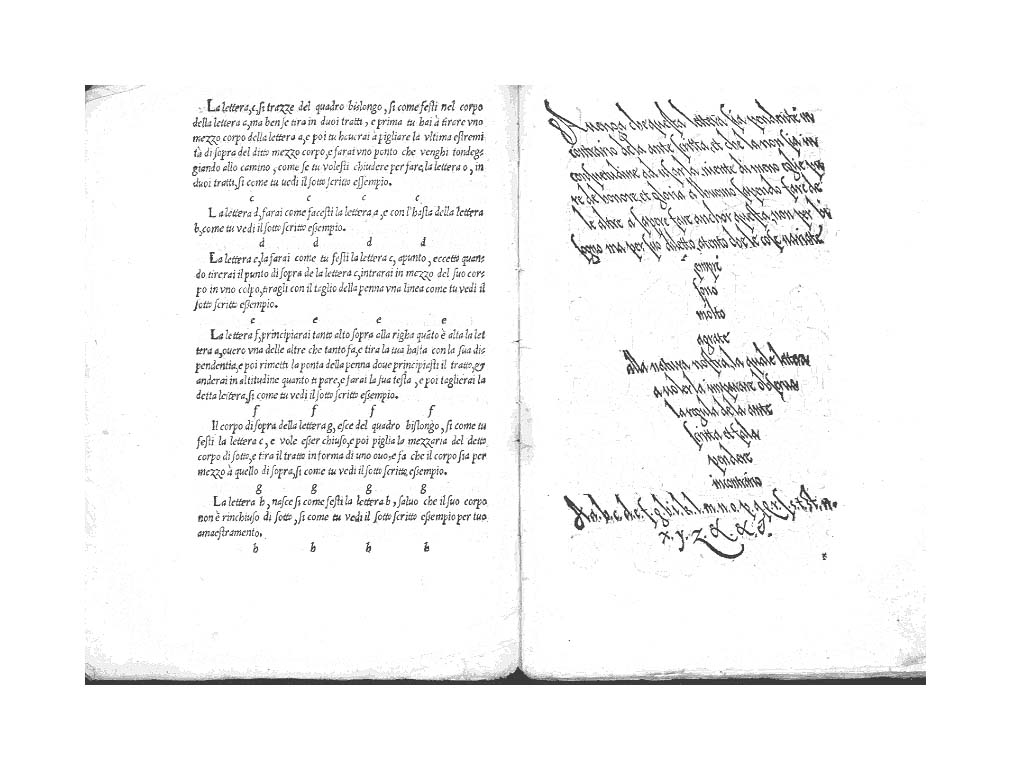 La lettera, c, si trazze del quadro bislongo, si come festi nel corpo
della lettera a, ma ben se tira in duoi tratti, e prima tu hai à tirare vno
mezzo corpo della lettera a, e poi tu haurai à pigliare la vltima estremi
tà di sopra del ditto mezzo corpo, e farai vno ponto che venghi tondeg
giando allo camino, come se tu volesti chiudere per fare, la lettera o, in
duoi tratti, si come tu vedi il sotto scritto essempio.
c c c c
La lettera d, farai come facesti la lettera, a, e con l'hasta della lettera
b, come tu vedi il sotto scritto essempio.
d d d d
La lettera e, la farai come tu festi la lettera c, apunto, eccetto quan
do tirerai il punto di sopra de la lettera c, intrarai in mezzo del suo cor
po in vno colpo, tiragli con il taglio della penna vna linea come tu vedi il
sotto scritto essempio.
e e e e
La lettera f, principiarai tanto alto sopra alla righa quāto è alta la let
tera a, ouero vna delle altre che tanto fa, e tira la tua hasta con la sua dis
pendentia, e poi rimetti la ponta della penna doue principiesti il tratto, et
anderai in altitudine quanto ti pare, e farai la sua testa, e poi taglierai la
detta lettera, si come tu vedi il sotto scritto essempio.
f f f f
Il corpo di sopra della lettera g, esce del quadro bislongo, si come tu
festi la lettera c, e vole esser chiuso, e poi piglia la mezzaria del detto
corpo di sotto, e tira il tratto in forma di uno ouo, e fa che il corpo sia per
mezzo à quello di sopra, si come tu vedi il sotto scritto essempio.
g g g g
La lettera h, nasce si come festi la lettera b, saluo che il suo corpo
non è rinchiuso di sotto, si come tu vedi il sotto scritto essempio per tuo
amaestramento.
h h h h
Auenga che questa lettera sia pendente in
contrario della ante scritta, et che la non sia in
consuetudine ad usarla, niente di meno egli è pa
re de honore, et gloria al huomo sapendo fare de
le altre a sapere fare anchor questa, non per bi
sogno ma per suo diletto, atento che le cose uariate
sempre
sono
molto
agrate
alla natura nostra, la quale lettera
a uoler la imparare obserua
la regula de la ante
scritta et fala
pendere
in contrario
A.a.b.c.d.e.f.g.h.i.k.l.m.n.o.p.q.r.s.t.
x.y.z.&.